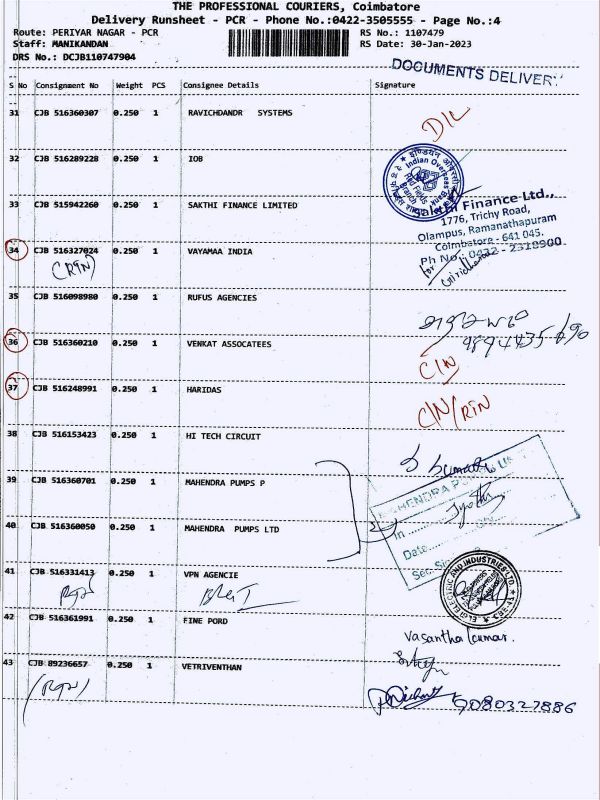 THE PROFESSIONAL COURIERS, Coimbatore
Delivery Runsheet - PCR - Phone No.:0422-3505555 - Page No.:4
Route: PERIYAR NAGAR - PCR
RS No.: 1107479
Staff: MANIKANDAN
RS Date: 30-Jan-2023
DRS No.: DCJB110747904
DOCUMENTS DELIVERY
S No Consignment No Weight PCS Consignee Details Signature
31 CJB 516360307 0.250 1 RAVICHDANDR SYSTEMS
D/L
32 CJB 516289228 0.250 1 IOB
Indian Overseas Bank
33 CJB 515942260 0.250 1 SAKTHI FINANCE LIMITED
Finance Ltd.,
1776, Trichy Road,
Olampus, Ramanathapuram
Coimbatore - 641 045.
Ph No. 0422 - 2318900
34 CJB 516327024 0.250 1 VAYAMAA INDIA
for
35 CJB 516098980 0.250 1 RUFUS AGENCIES
36 CJB 516360210 0.250 1 VENKAT ASSOCATEES
C/N
37 CJB 516248991 0.250 1 HARIDAS
C/N/RIN
38 CJB 516153423 0.250 1 HI TECH CIRCUIT
39 CJB 516360701 0.250 1 MAHENDRA PUMPS P
40 CJB 516360050 0.250 1 MAHENDRA PUMPS LTD
In
Date
41 CJB 516331413 0.250 1 VPN AGENCIE
42 CJB 516361991 0.250 1 FINE PORD
Vasanthakumar.
43 CJB 89236657 0.250 1 VETRIVENTHAN
9080327886